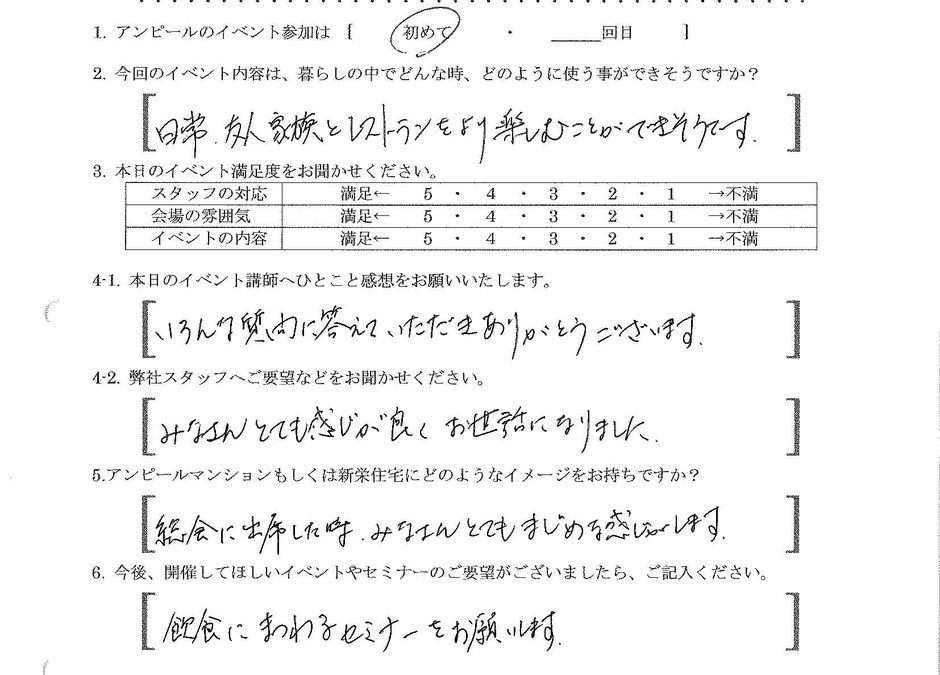 1. アンピールのイベント参加は [ 初めて ・ _____回目 ]
2. 今回のイベント内容は、暮らしの中でどんな時、どのように使う事ができそうですか？
日常、友人家族とレストランをより楽しむことができそうです。
3. 本日のイベント満足度をお聞かせください。
スタッフの対応 満足← 5 ・ 4 ・ 3 ・ 2 ・ 1 →不満
会場の雰囲気 満足← 5 ・ 4 ・ 3 ・ 2 ・ 1 →不満
イベントの内容 満足← 5 ・ 4 ・ 3 ・ 2 ・ 1 →不満
4-1. 本日のイベント講師へひとこと感想をお願いいたします。
いろんな質問に答えていただきありがとうございます。
4-2. 弊社スタッフへご要望などをお聞かせください。
みなさんとても感じが良くお世話になりました。
5.アンピールマンションもしくは新栄住宅にどのようなイメージをお持ちですか？
総会に出席した時、みなさんとてもまじめな感じがします。
6. 今後、開催してほしいイベントやセミナーのご要望がございましたら、ご記入ください。
飲食にまつわるセミナーをお願いします。